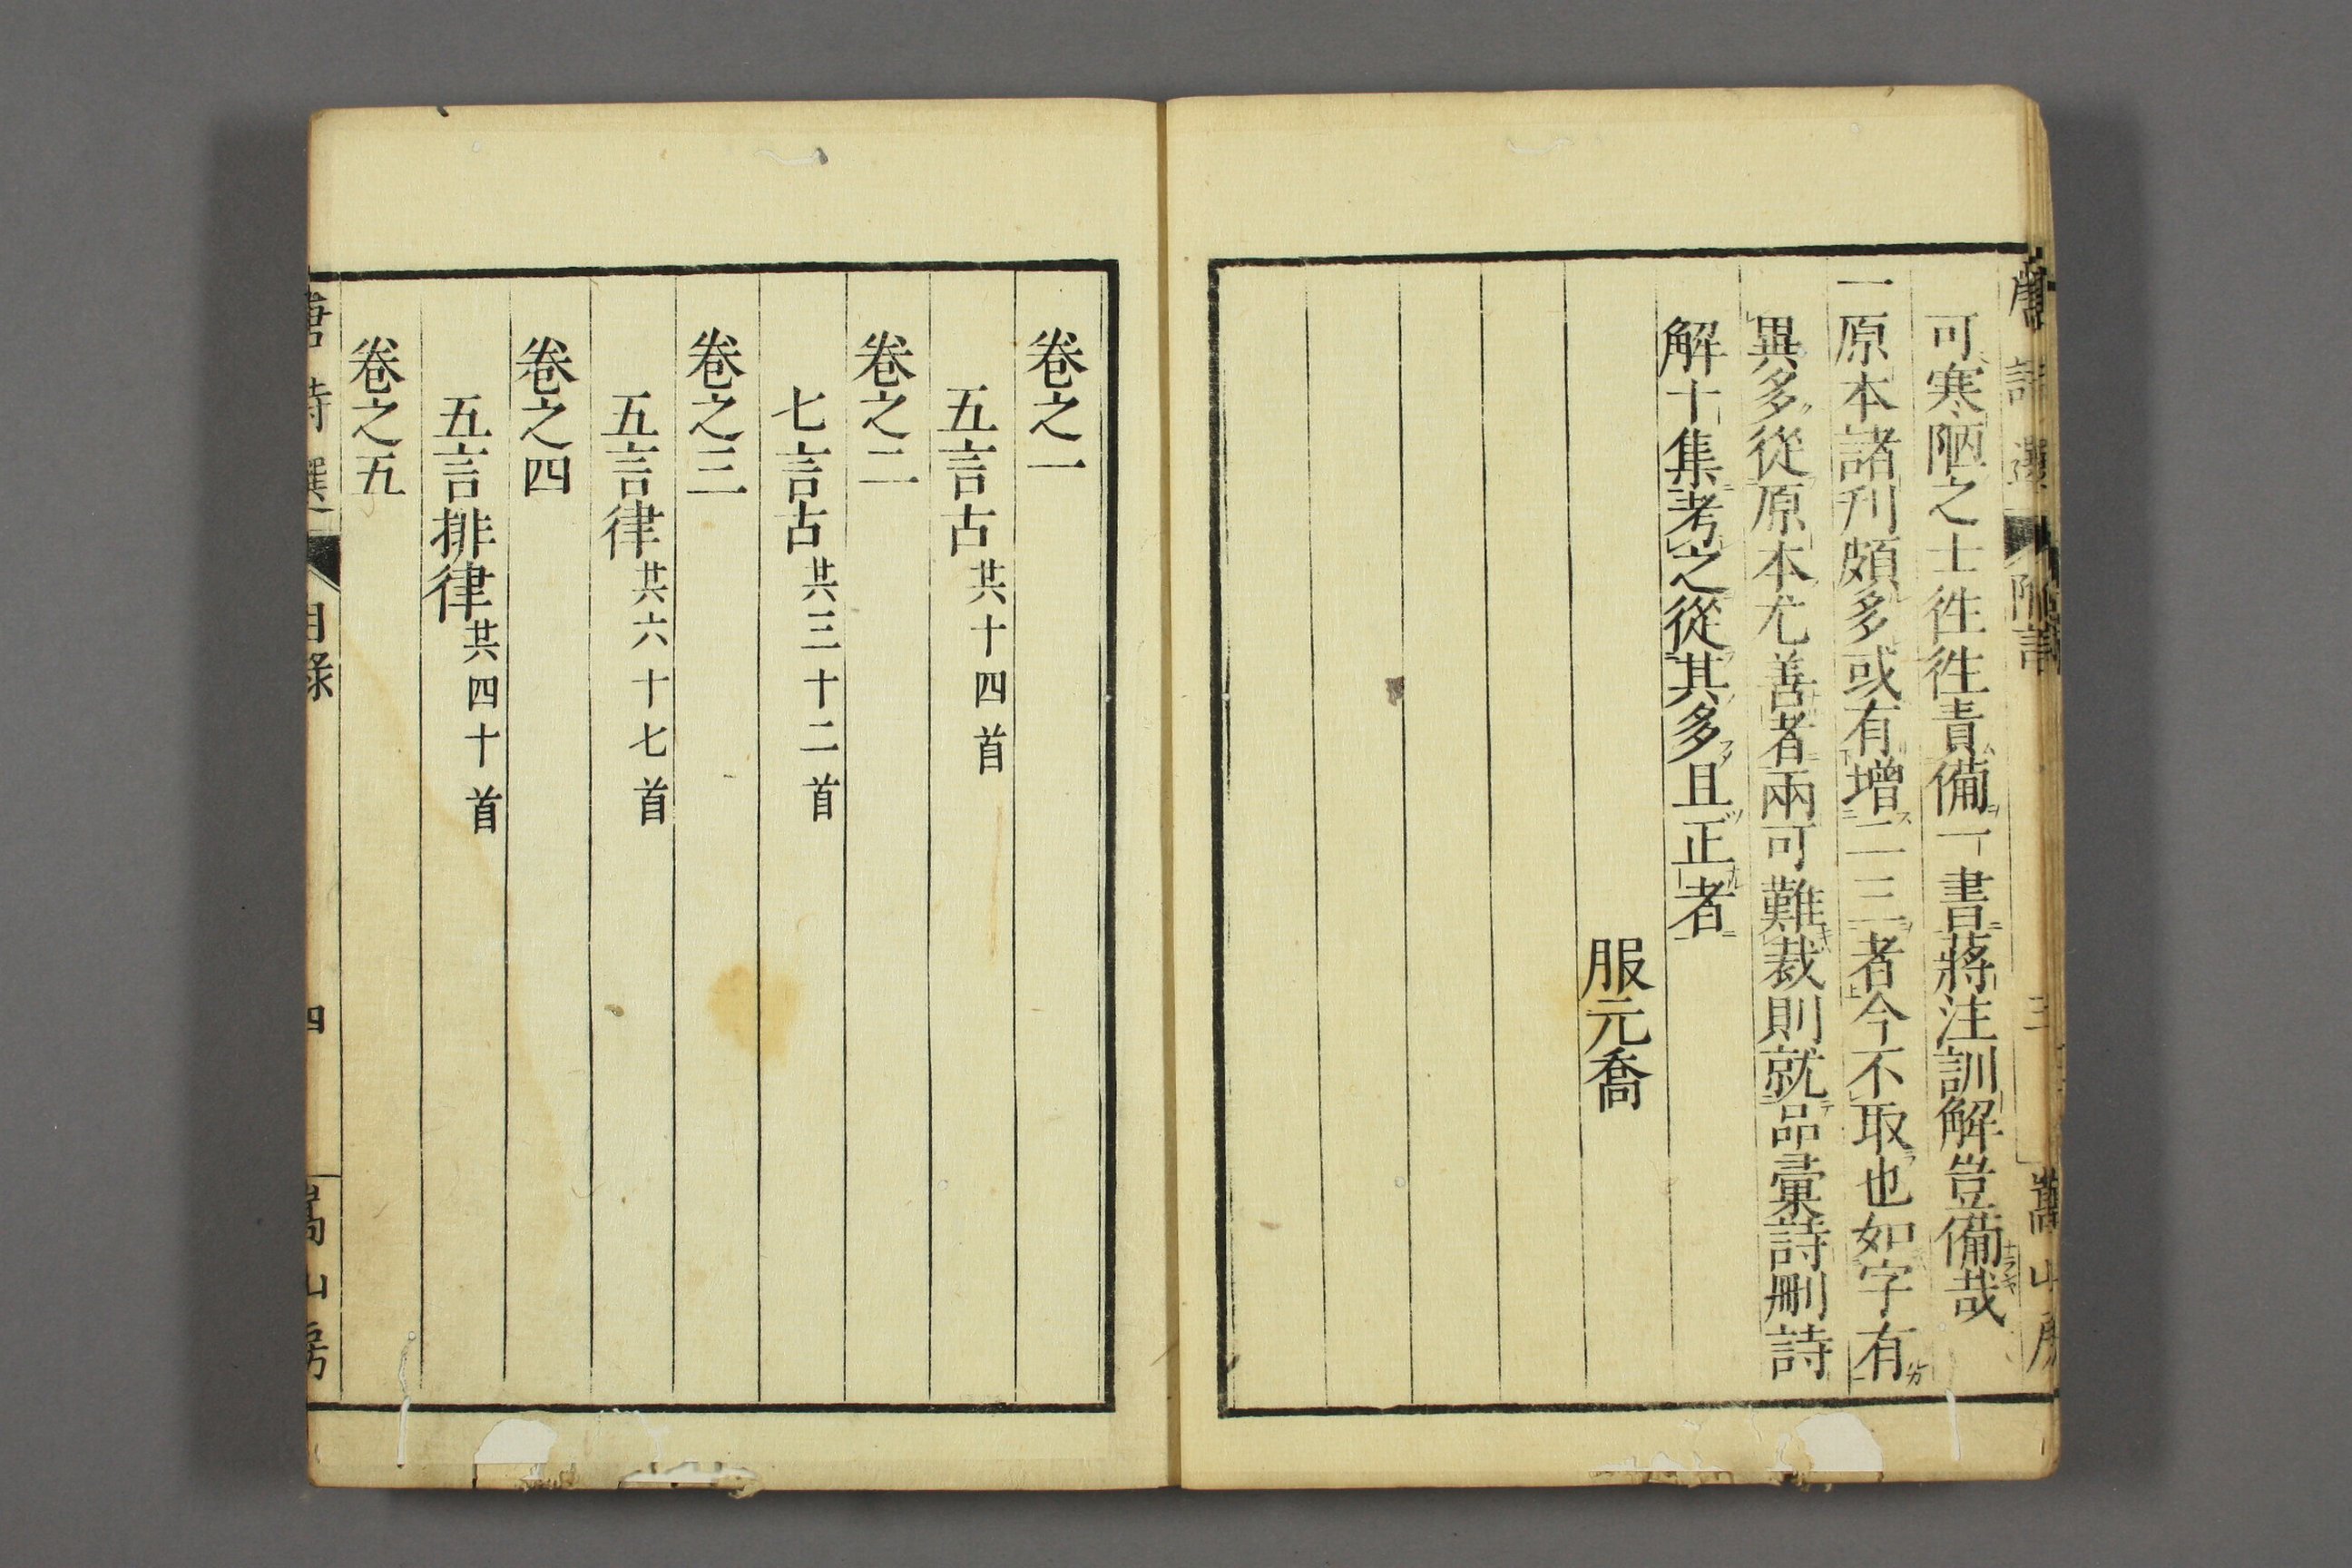 唐詩選 附言 三 嵩山房
可寒陋之士徃徃責備一書蔣注訓解豈備哉
一原本諸刋頗多或有增二三者今不取也如字有
異多從原本尤善者兩可難裁則就品彙詩刪詩
解十集考之從其多且正者
服元喬
卷之一
五言古共十四首
卷之二
七言古共三十二首
卷之三
五言律共六十七首
卷之四
五言排律共四十首
卷之五
唐詩選 目錄 四 嵩山房